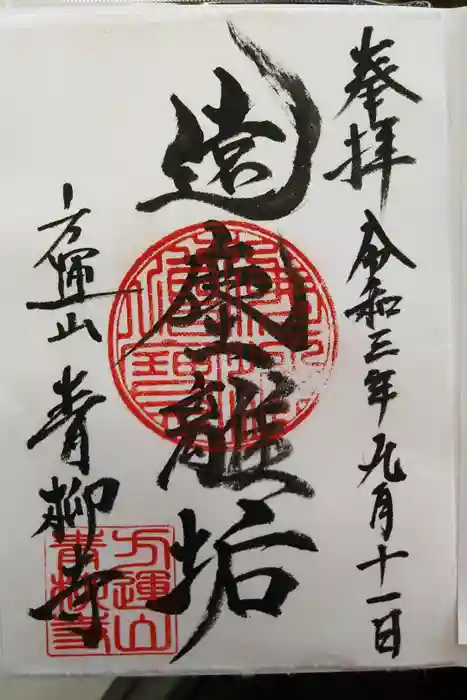 奉拝 令和三年九月十一日
遠塵離垢
方運山 青柳寺
方運山
青柳寺